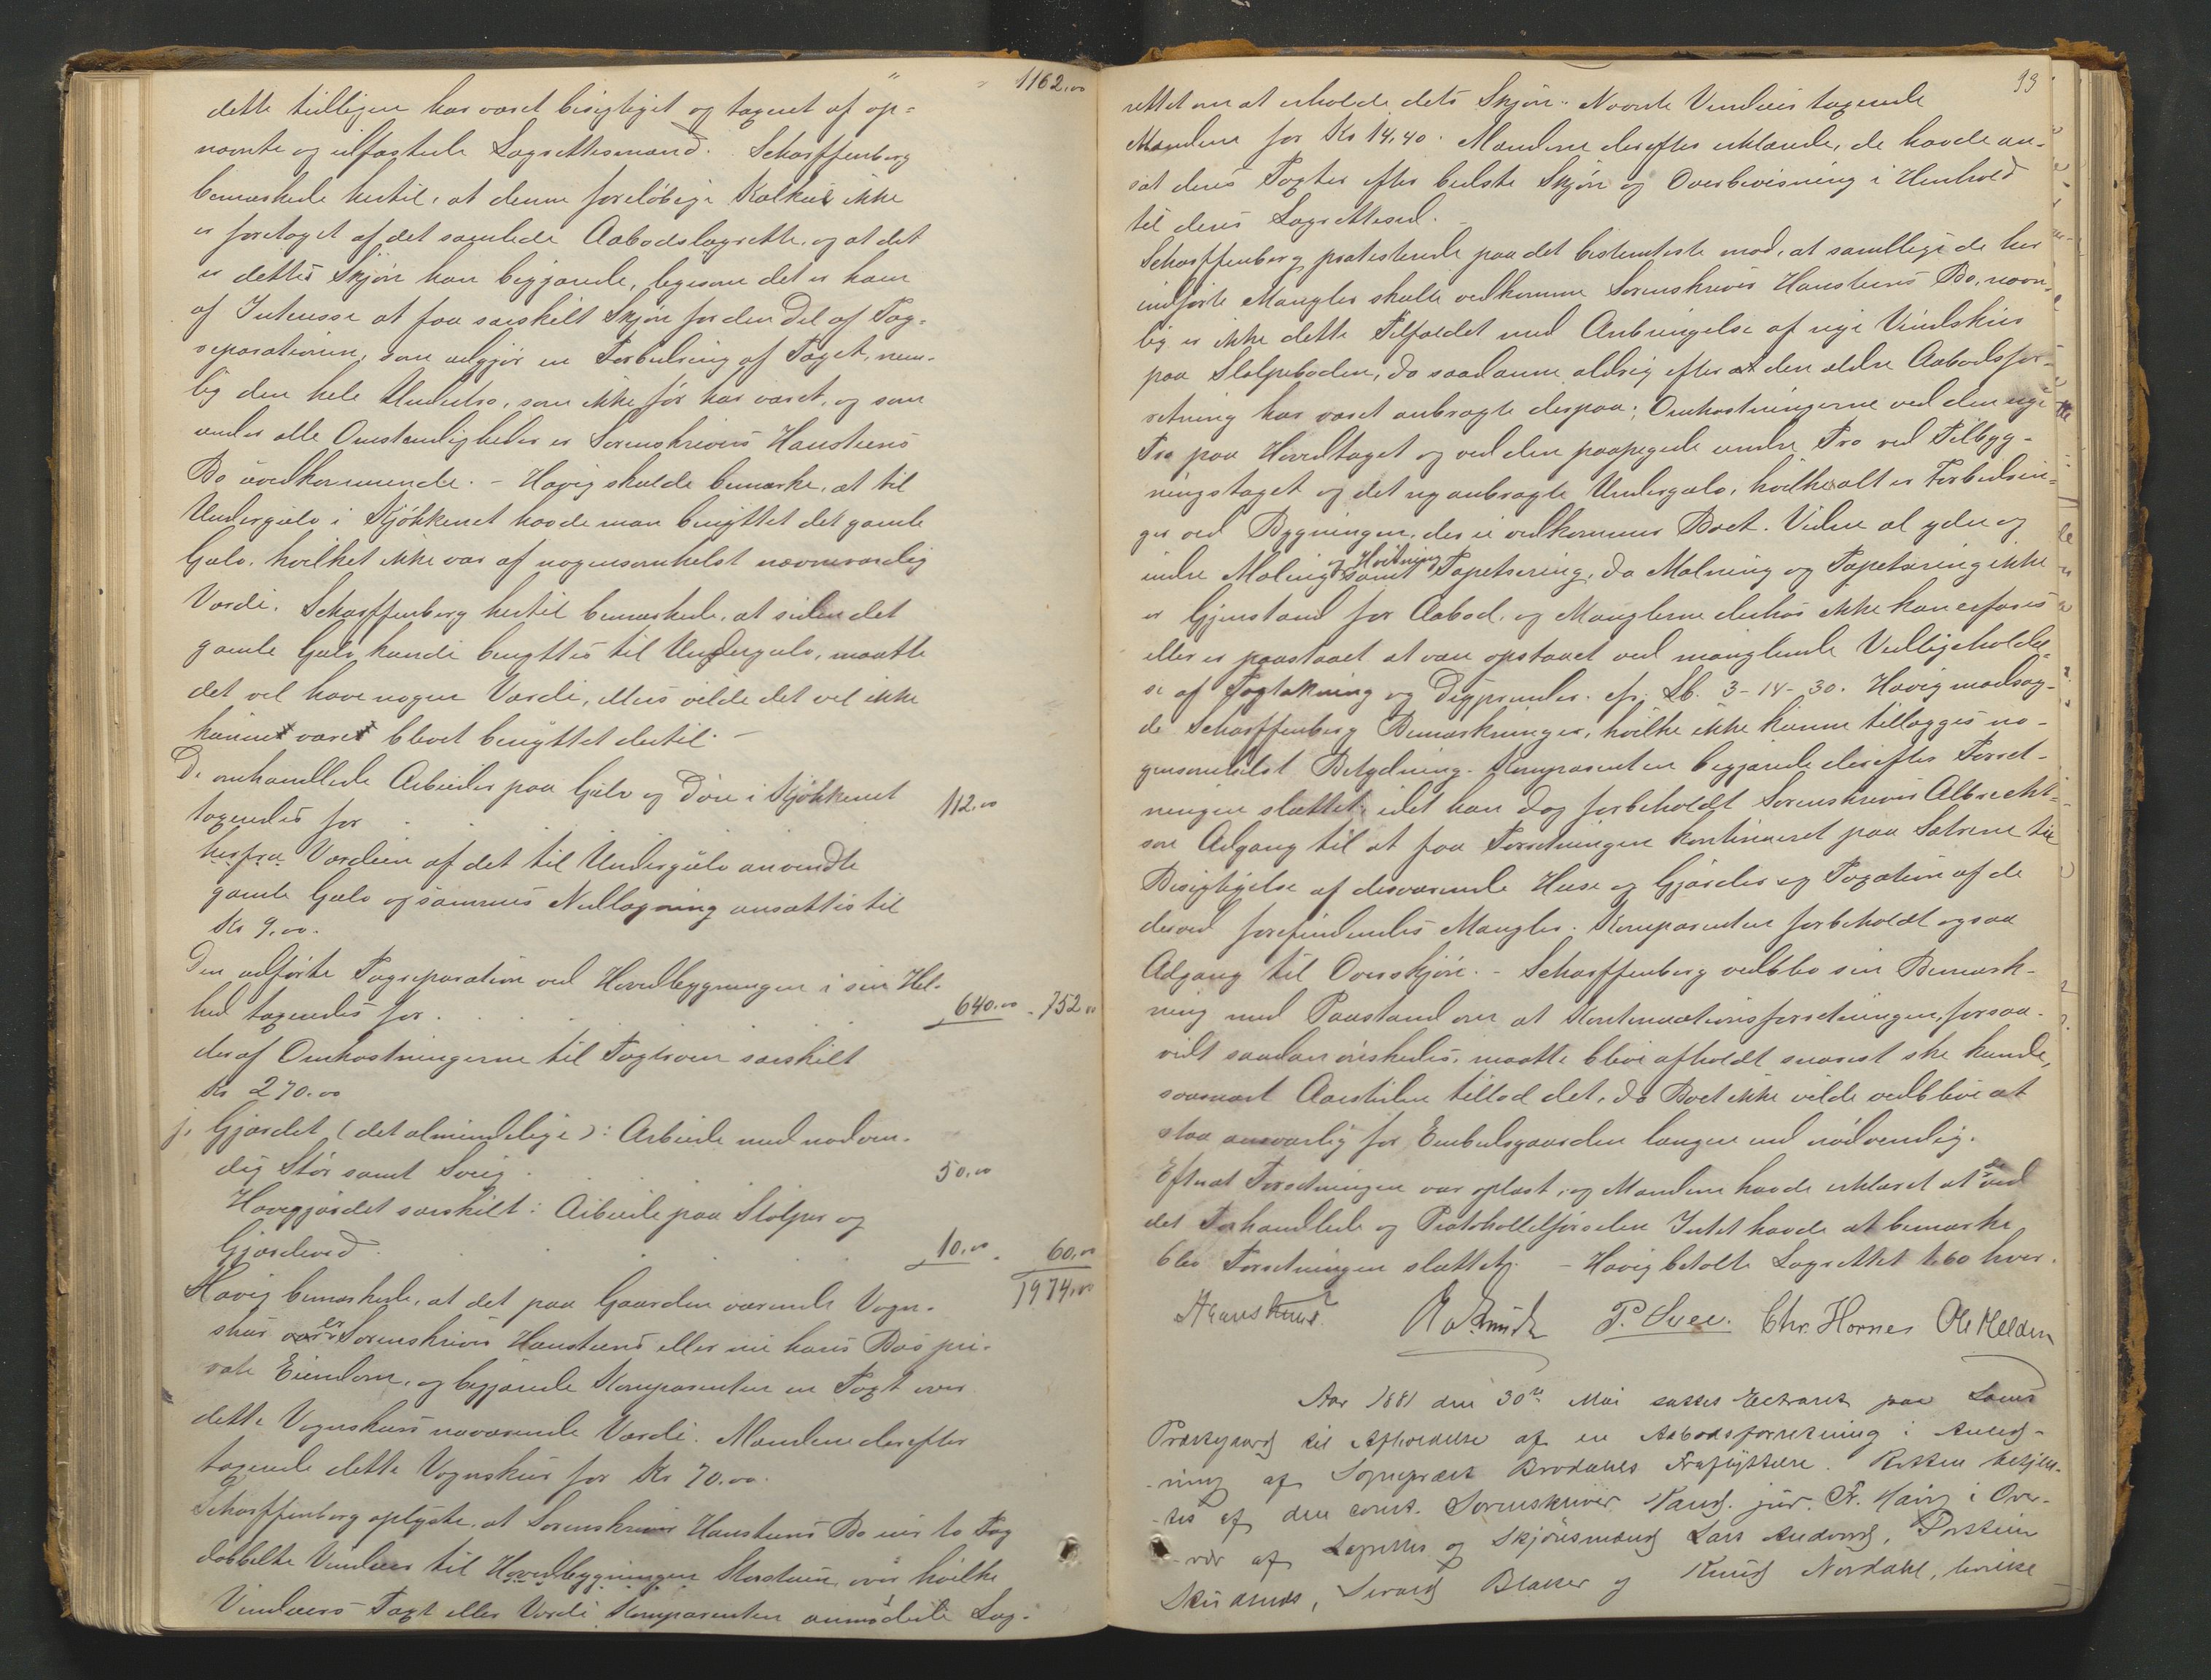 " " 1162,00
dette tidligere har været besigtiget og taxeret af op-
nævnte og edfæstede Lagrettesmænd. Scharffenberg
bemærkede hertil, at denne foreløbige Kalküle ikke
er foretaget af det samlede Aabodslagrette, og at det
er dettes Skjøn han begjærede, ligesom det er ham
af Interesse at faa særskilt Skjøn for den Del af Tag-
reparationen, som udgjør en Forbedring af Taget, nem-
lig den hele Undertro, som ikke før har været, og som
under alle Omstændigheder er Sorenskriver Hansteens
Bo uvedkommende. - Høvig skulde bemærke, at til
Undergulv i Kjøkkenet havde man benyttet det gamle
Gulv, hvilket ikke var af nogensomhelst nævneværdig
Værdi. Scharffenberg hertil bemærkede, at siden det
gamle Gulv kunde benyttes til Undergulv, maatte
det vel have nogen Værdi, ellers vilde det vel ikke
kunnet være blevet benyttet dertil. -
De omhandlede Arbeider paa Gulv og Døre i Kjøkkenet
taxeredes for . . . 112,00
herfra Værdien af det til Undergulv anvendte
gamle Gulv og sammes Nedlægning ansattes til
Kr 9,00.
Den udførte Tagreparation ved Hovedbygningen i sin Hel-
hed taxeredes for . . . . 640,00 - 752,00
deraf Omkostningerne til Tagtroen særskilt
Kr 270,00
j, Gjærdet (det almindelige): Arbeide med nødven-
dig Stør samt Sveig . 50,00
Havegjærdet særskilt: Arbeide paa Stolper og
Gjærdeved . . . . 10,00 - 60,00
1974,00
Høvig bemærkede, at det paa Gaarden værende Vogn-
skur er Sorenskriver Hansteens eller nu hans Bos pri-
vate Eiendom, og begjærede Komparenten en Taxt over
dette Vognskurs nuværende Værdi. Mændene derefter
taxerede dette Vognskur for Kr 70,00.
Scharffenberg oplyste, at Sorenskriver Hansteens Bo eier to Fag
dobbelte Vinduer til Hovedbygningens Storstuen, over hvilke
Vinduers Taxt eller Værdi Komparenten anmodede Lag-
93
rettet om at erholde dets Skjøn. Nævnte Vinduer taxerede
Mændene for Kr 14,40. Mændene derefter erklærede, de havde an-
sat deres Taxter efter bedste Skjøn og Overbevisning i Henhold
til deres Lagrettesed.
Scharffenberg protesterede paa det bestemteste mod, at samtlige de her
indførte Mangler skulle vedkomme Sorenskriver Hansteens Bo, navn-
lig er ikke dette Tilfældet med Anbringelse af nye Vindskier
paa Stolpeboden, da saadanne aldrig efter den ældre Aabodsfor-
retning har været anbragte derpaa; Omkostningerne ved den nye
Tro paa Hovedtaget og ved den paapegede undre Tro ved Tilbyg-
ningstaget og det ny anbragte Undergulv, hvilket alt er Forbedrin-
ger ved Bygningen, der ei vedkommer Boet. Videre al ydre og
indre Maling og Hvitning samt Tapetsering, da Malning og Tapetsering ikke
er Gjenstand for Aabod, og Manglerne derhos ikke kan erfares
eller er paastaaet at være opstaaet ved manglende Vedligeholdel-
se af Tagtækning og Digprender. cfr. Lb. 3-14-30. Høvig modsag-
de Scharffenberg Bemærkninger, hvilke ikke kunne tillægges no-
gensomhelst Betydning. Komparenten begjærede derefter Forret-
ningen sluttet, idet han dog forbeholdt Sorenskriver Albrecht-
sen Adgang til at faa Forretningen kontinueret paa Sætrene til
Besigtigelse af derværende Huse og Gjærder og Taxation af de
derved forefindendes Mangler. Komparenten forbeholdt ogsaa
Adgang til Overskjøn. - Scharffenberg vedblev sin Bemærk-
ning med Paastand om at Kontinuationsforretningen, forsaa-
vidt saadan ønskedes, maatte blive afholdt snarest ske kunde,
saasnart Aarstiden tillod det, da Boet ikke vilde vedblive at
staa ansvarlig for Embedsgaarden længere end nødvendig.
Efterat Forretningen var oplæst, og Mændene havde erklæret at de ved
det Forhandlede og Protokollførelsen Intet havde at bemærke
blev Forretningen sluttet. - Høvig betalte Lagrettet 1.60 hver.
P. Svee. Chr. Hornes Ole Melden
Aar 1881 den 30te Mai sattes Extraret paa Loms
Præstegaard til Afholdelse af en Aabodsforretning i Anled-
-ning af Sognepræst Brodahls Fraflyttelse. Retten betjen-
-tes af den const. Sorenskriver Kand. jur. Fr. Høvig i Over-
-vær af Lagrettes og Skjønsmænd Lars , 
, Sivard Blakar og Knud Nordahl, hvilke